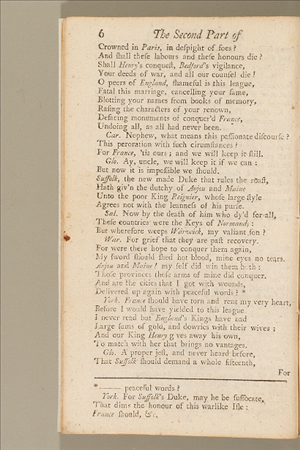 6 The Second Part of
Crowned in Paris, in despight of foes?
And shall these labours and these honours die?
Shall Henry's conquest, Bedford's vigilance,
Your deeds of war, and all our counsel die?
O peers of England, shameful is this league,
Fatal this marriage, cancelling your fame,
Blotting your names from books of memory,
Rasing the characters of your renown,
Defacing monuments of conquer'd France,
Undoing all, as all had never been.
Car. Nephew, what means this passionate discourse?
This peroration with such circumstances?
For France, 'tis ours; and we will keep it still.
Glo. Ay, uncle, we will keep it if we can;
But now it is impossible we should.
Suffolk, the new made Duke that rules the roast,
Hath giv'n the dutchy of Anjou and Maine
Unto the poor King Reignier, whose large style
Agrees not with the leanness of his purse.
Sal. Now by the death of him who dy'd for all,
These counties were the Keys of Normandy:
But wherefore weeps Warwick, my valiant son?
War. For grief that they are past recovery.
For were there hope to conquer them again,
My sword should shed hot blood, mine eyes no tears.
Anjou and Maine! my self did win them both:
Those provinces these arms of mine did conquer.
And are the cities that I got with wounds,
Delivered up again with peaceful words? *
York. France should have torn and rent my very heart,
Before I would have yielded to this league.
I never read but England's Kings have had
Large sums of gold, and dowries with their wives;
And our King Henry gives away his own,
To match with her that brings no vantages.
Glo. A proper jest, and never heard before,
That Suffolk should demand a whole fifteenth,
For
* —— peaceful words?
York. For Suffolk's Duke, may he be suffocate,
That dims the honour of this warlike Isle:
France should, &c.